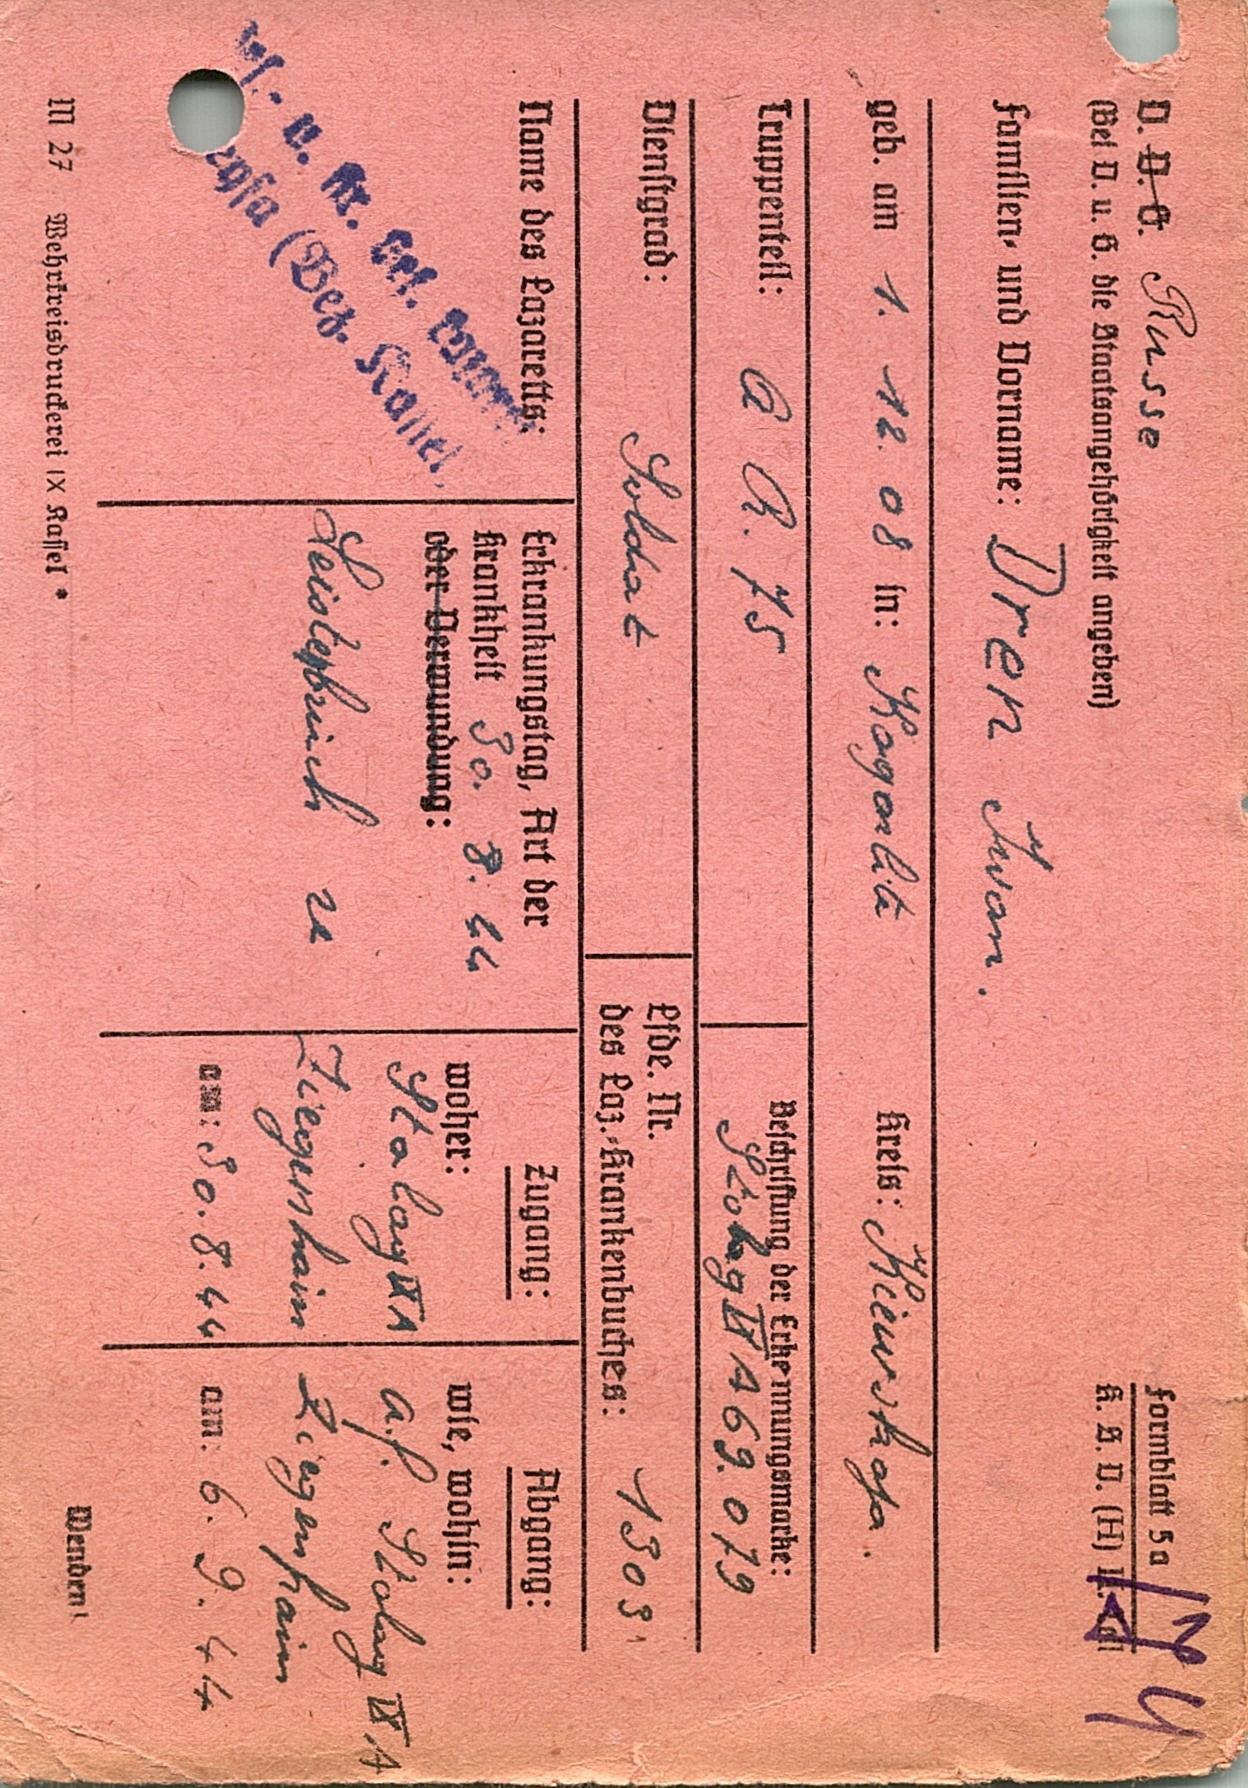 Formblatt 5a
K. S. D. (H)
D. D. O. Russe
(Bei D. u. G. die Staatsangehörigkeit angeben)
Familien- und Vorname: Dren Iwan.
geb. am 1. 12. 08 in: Kreis: Kiewskaja.
Truppenteil: A. R. 75 Beschriftung der Erkennungsmarke:
Stalag IX A 69.079
Dienstgrad: Soldat Lfde. Nr.
des Laz.-Krankenbuches: 1303
Name des Lazaretts:
Res.- u. Kr. Gef. Lazarett
(Bez. Kassel)
Erkrankungstag, Art der
Krankheit 30. 8. 44
oder Verwundung:
Leistenbruch re
Zugang:
woher:
Stalag IX A
Ziegenhain
am: 30. 8. 44
Abgang:
wie, wohin:
a.f. Stalag IX A
Ziegenhain
am: 6. 9. 44
M 27 Wehrkreisdruckerei IX Kassel *
Wenden!